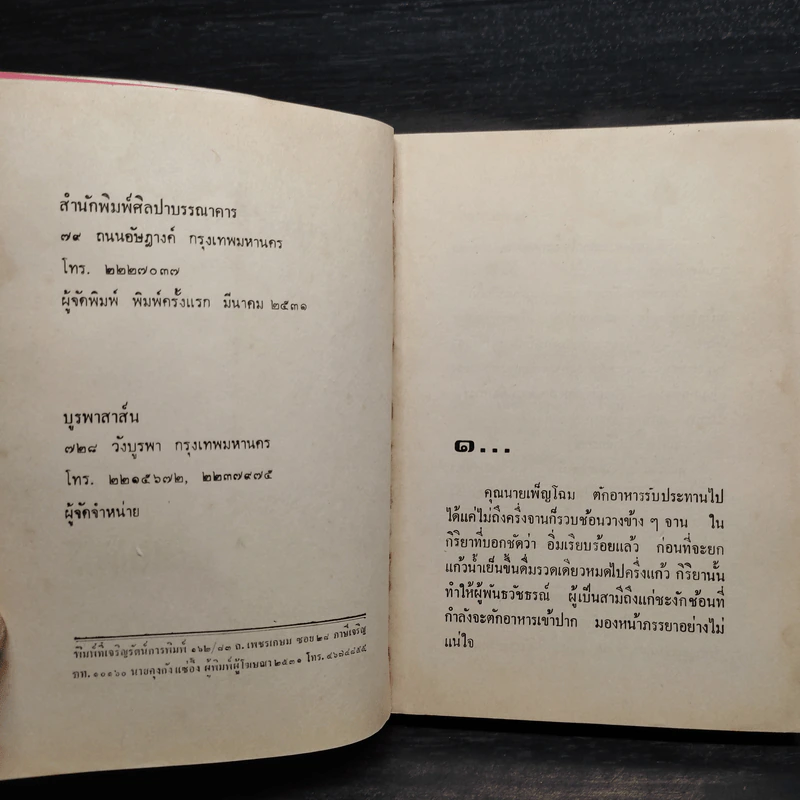 สำนักพิมพ์ศิลปาบรรณาคาร
๗๙ ถนนอัษฎางค์ กรุงเทพมหานคร
โทร. ๒๒๒๗๐๓๗
ผู้จัดพิมพ์ พิมพ์ครั้งแรก มีนาคม ๒๕๓๑
บูรพาสาส์น
๗๒๘ วังบูรพา กรุงเทพมหานคร
โทร. ๒๒๑๕๖๗๒, ๒๒๓๗๙๗๕
ผู้จัดจำหน่าย
พิมพ์ที่เจริญรัตน์การพิมพ์ ๑๖๒/๘๓ ถ. เพชรเกษม ซอย ๒๘ ภาษีเจริญ
กท. ๑๐๑๖๐ นายคุงกัง แซ่อึ้ง ผู้พิมพ์ผู้โฆษณา ๒๕๓๑ โทร. ๔๖๗๔๘๕๕
๑...
คุณนายเพ็ญโฉม ตักอาหารรับประทานไป
ได้แค่ไม่ถึงครึ่งจานก็รวบช้อนวางข้าง ๆ จาน ใน
กิริยาที่บอกชัดว่า อิ่มเรียบร้อยแล้ว ก่อนที่จะยก
แก้วน้ำเย็นขึ้นดื่มรวดเดียวหมดไปครึ่งแก้ว กิริยานั้น
ทำให้ผู้พันธวัชธรณ์ ผู้เป็นสามีถึงแก่ชะงักช้อนที่
กำลังจะตักอาหารเข้าปาก มองหน้าภรรยาอย่างไม่
แน่ใจ